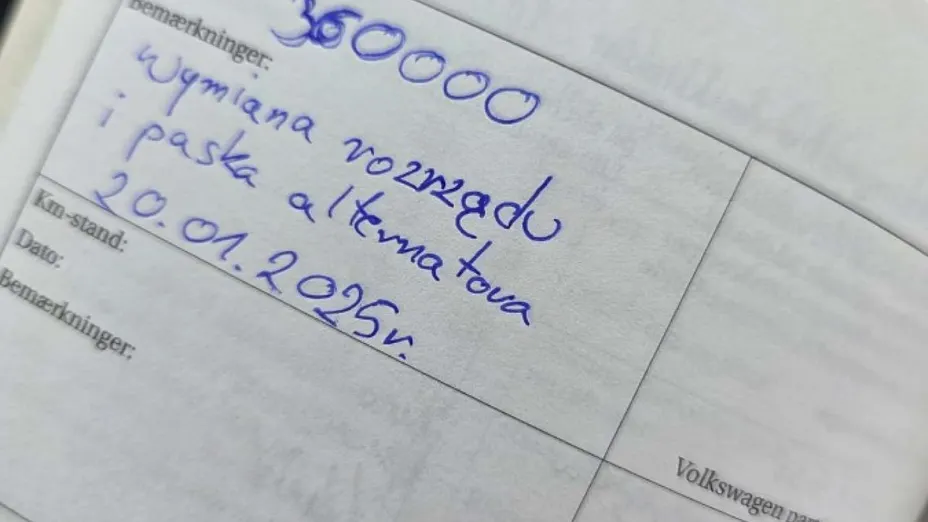 360000
Bemærkninger:
Wymiana rozrządu
i paska alternatora
20.01.2025r.
Km-stand:
Dato:
Bemærkninger:
Volkswagen